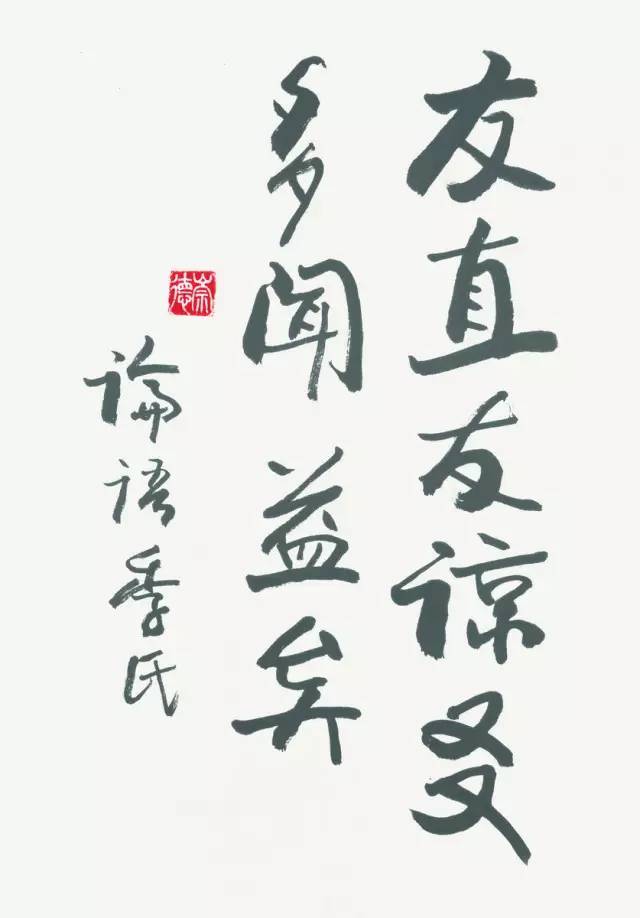 友直友谅㕛
多闻益矣
论语季氏
崇德